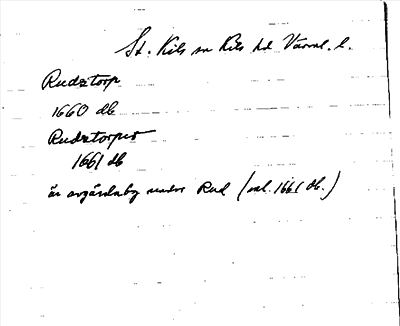 St. Kils sn Kils hd Värml. l.
Rudztorp
1660 db
Rudztorpet
1661 db
är avgärdaby under Rud (enl. 1661 db.)